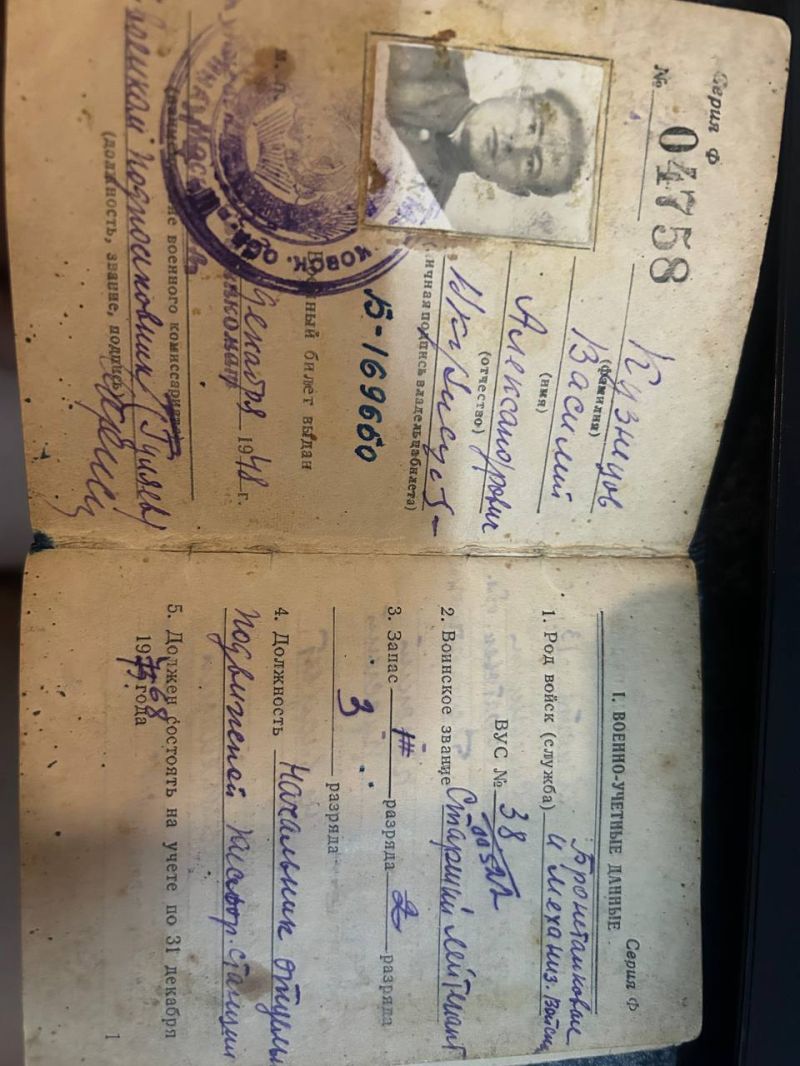 Серия Ф
№ 04758
Кузнецов
(фамилия)
Василий
(имя)
Александрович
(отчество)
(личная подпись владельца билета)
Б-169660
Военный билет выдан
декабря 1948 г.
военного комиссариата
подполковник (Гуляев)
(должность, звание, подпись)
Серия Ф
I. ВОЕННО-УЧЕТНЫЕ ДАННЫЕ
1. Род войск (служба) Бронетанковые
и механиз. войск
ВУС № 38
2. Воинское звание Старший лейтенант
3. Запас разряда 2 разряда
3 разряда
4. Должность Начальник
подвижной станции
5. Должен состоять на учете по 31 декабря
19 года
1